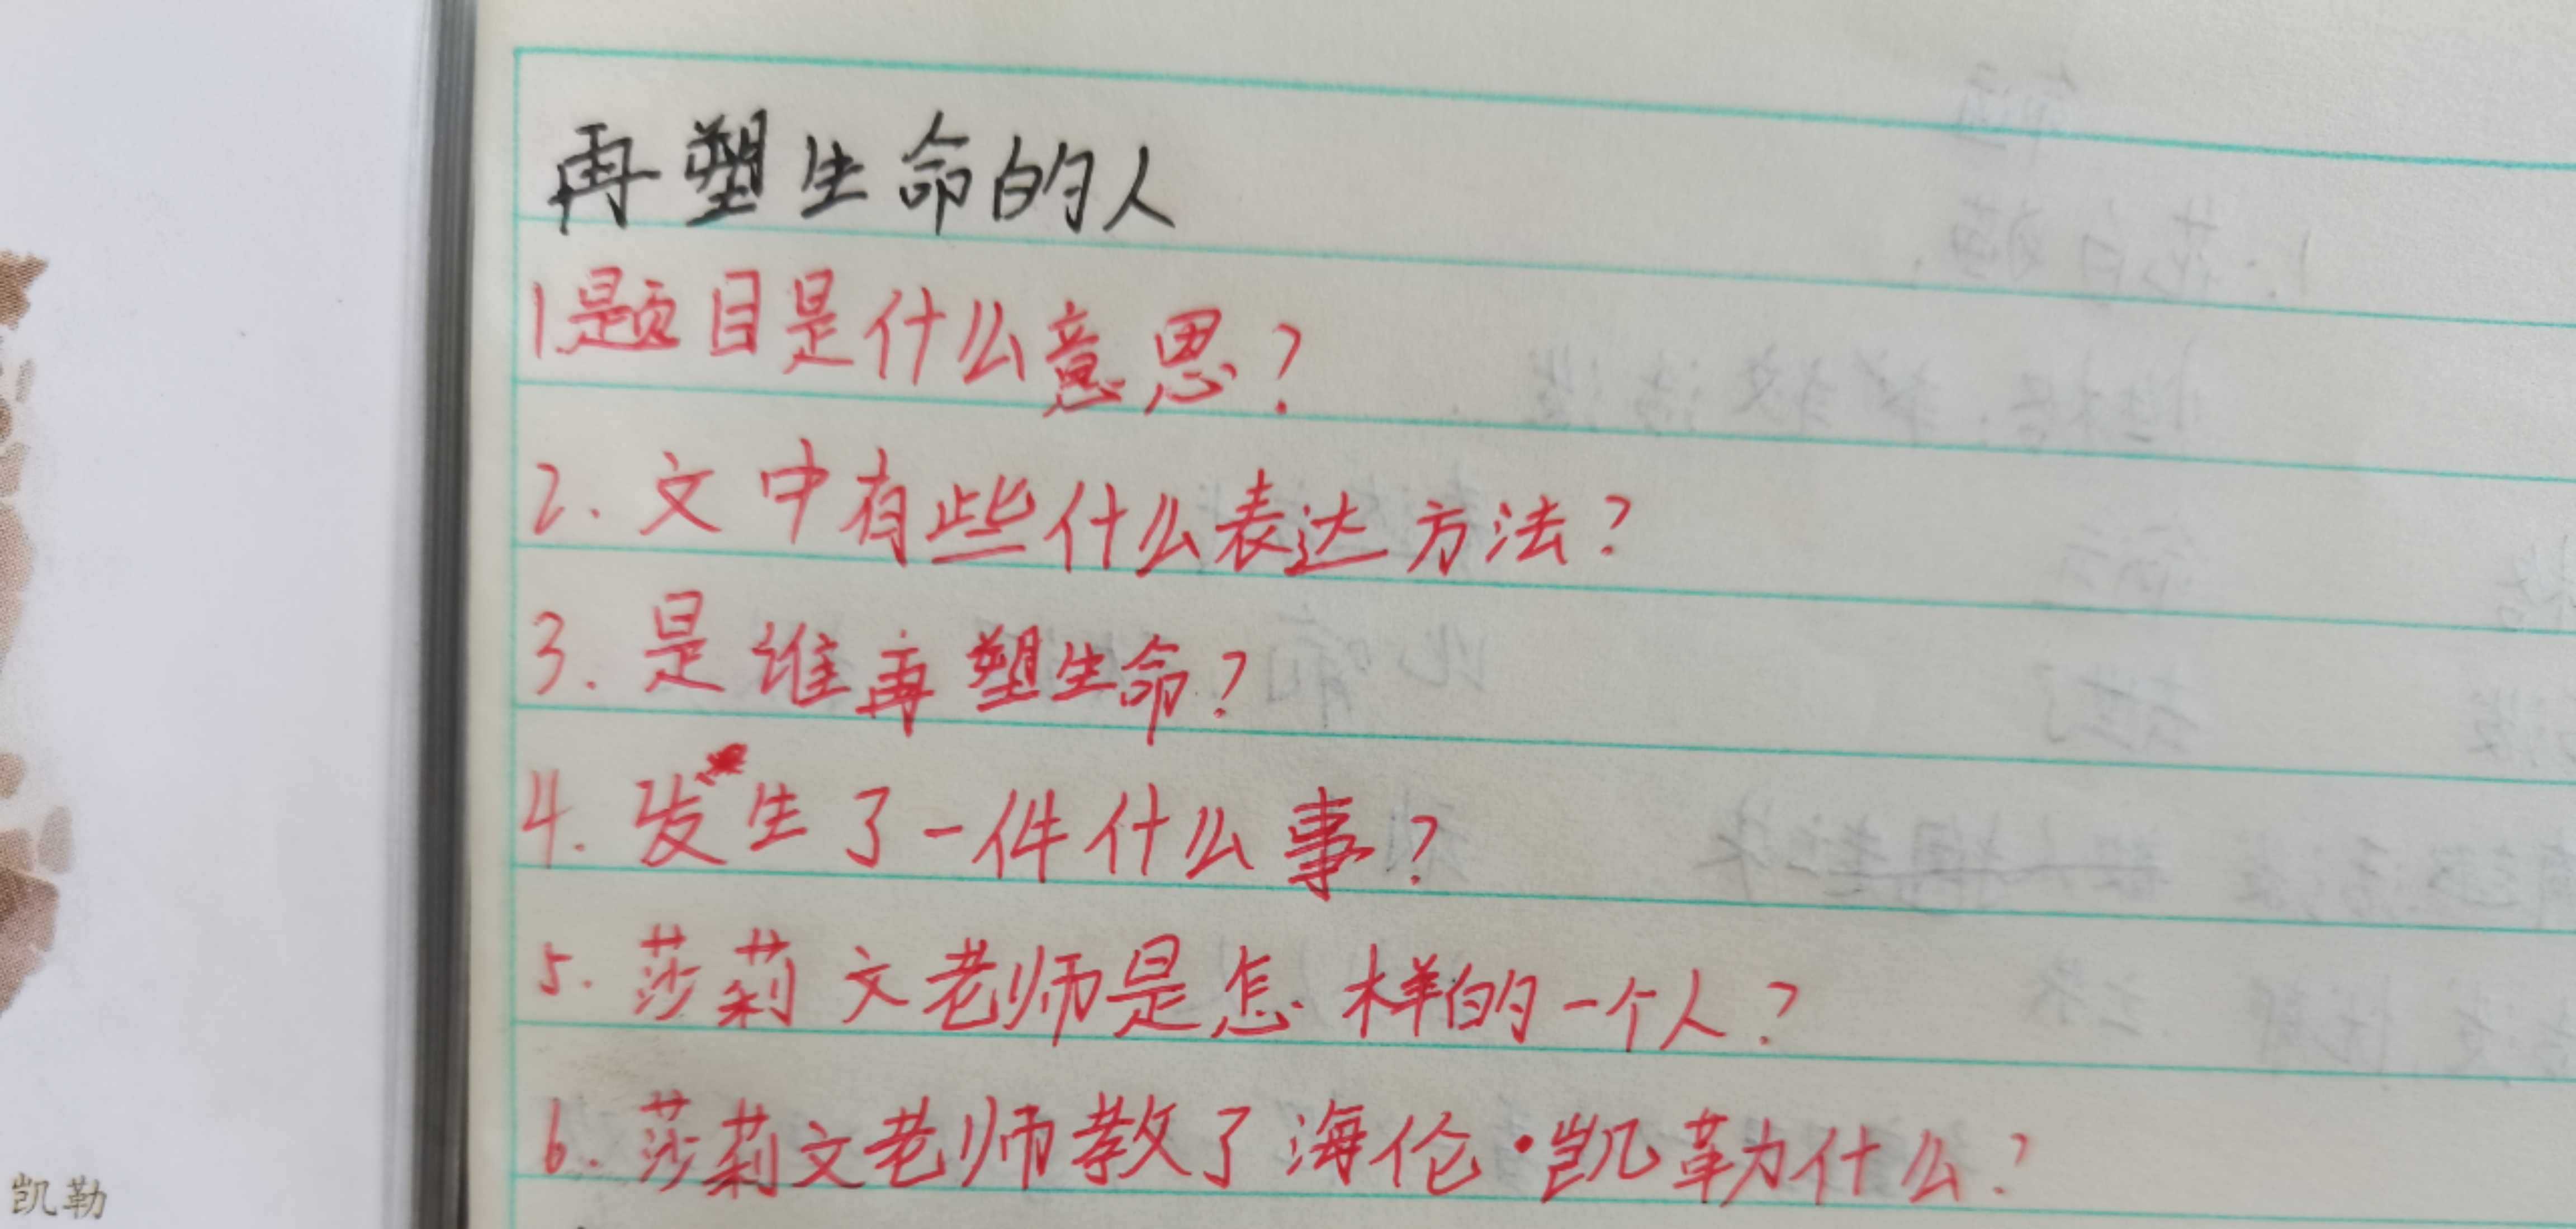 再塑生命的人
1.题目是什么意思?
2.文中有些什么表达方法?
3.是谁再塑生命?
4.发生了一件什么事?
5.莎莉文老师是怎样的一个人?
6.莎莉文老师教了海伦·凯勒什么?
凯勒